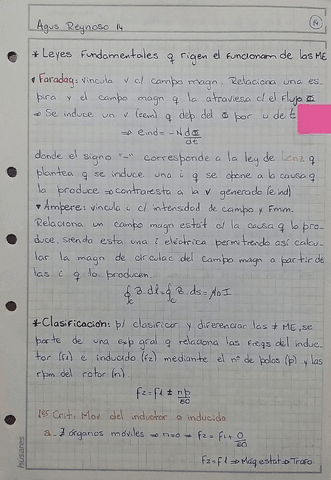 Agus Reynoso 14
14
* Leyes Fundamentales q rigen el Funcionam de las ME
• Faraday: vincula v c/ campo magn. Relaciona una es-
pira y el campo magn q la atraviesa c/ el Flujo Φ
⇒ Se induce un v (Fem) q dep del Φ por u de t
⇒ eind = -N dΦ/dt
donde el signo "-" corresponde a la ley de Lenz q
plantea q se induce una i q se opone a la causa q
la produce ⇒ contraresta a la v generada (e ind)
• Ampere: vincula i c/ intensidad de campo y Fmm.
Relaciona un campo magn estat c/ la causa q lo pro-
duce, siendo esta una i eléctrica permitiendo así calcu-
lar la magn de circulac del campo magn a partir de
las i q lo producen.
∮c B. dl = ∮c B. ds = μ0 I
* Clasificación: p/ clasificar y diferenciar las ≠ ME, se
parte de una exp gral q relaciona las Freqs del induc-
tor (F1) e inducido (F2) mediante el n° de polos (p) y las
rpm del rotor (n).
F2 = F1 ± np/60
1er Crit: Mov del inductor o inducido
a_ ∄ órganos móviles ⇒ n=0 ⇒ F2 = F1 + 0/60
F2 = F1 ⇒ Máq estat ⇒ Trafo
Húsares